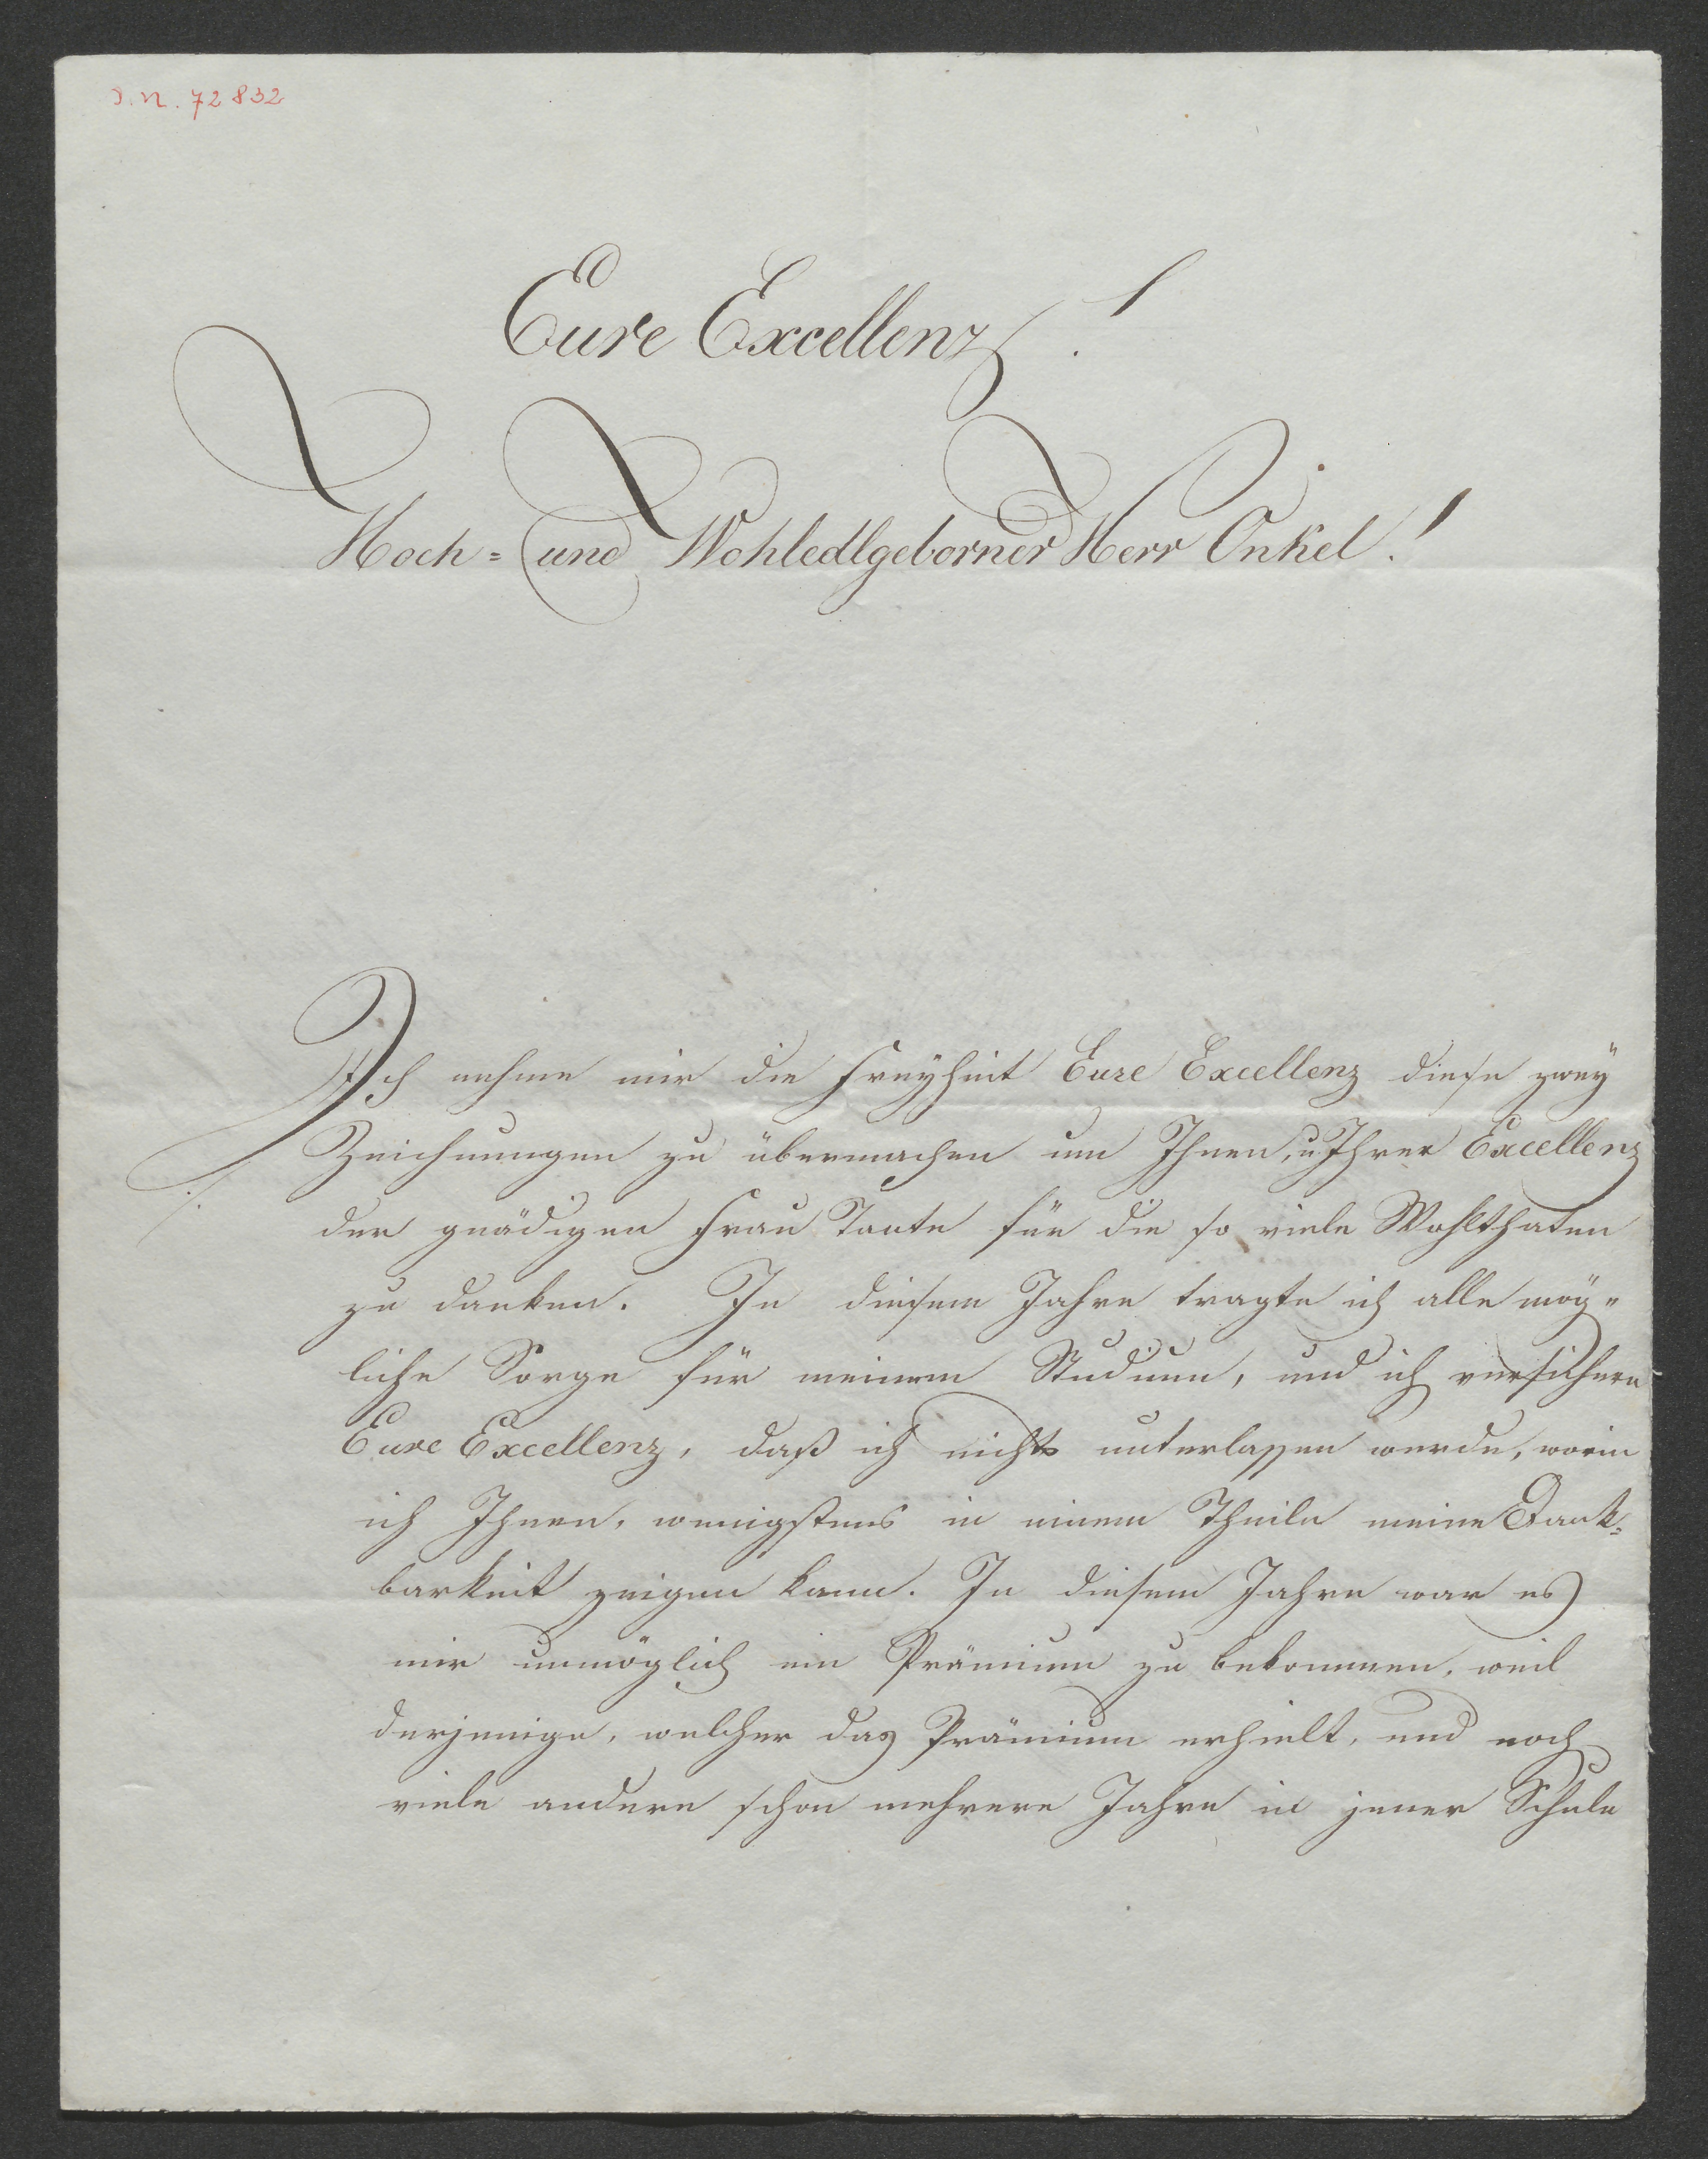 J.N. 72832
Eure Excellenz!
Hoch= und Wohledlgeborner Herr Onkel!
Ich nehme mir die Freyheit Eure Excellenz diese zwey
Zeichnungen zu übermachen um Ihnen, u Ihrer Excellenz
der gnädigen Frau Tante für die so viele Wohlthaten
zu danken. In diesem Jahre tragte ich alle mög-
liche Sorge für meinem Studium, und ich versichere
Eure Excellenz, daß ich nichts unterlassen werde, worin
ich Ihnen, wenigstens in einem Theile meine Dank-
barkeit zeigen kann. In diesem Jahre war es
mir unmöglich ein Prämium zu bekommen, weil
derjenige, welcher das Prämium erhielt, und noch
viele andere schon mehrere Jahre in jener Schule